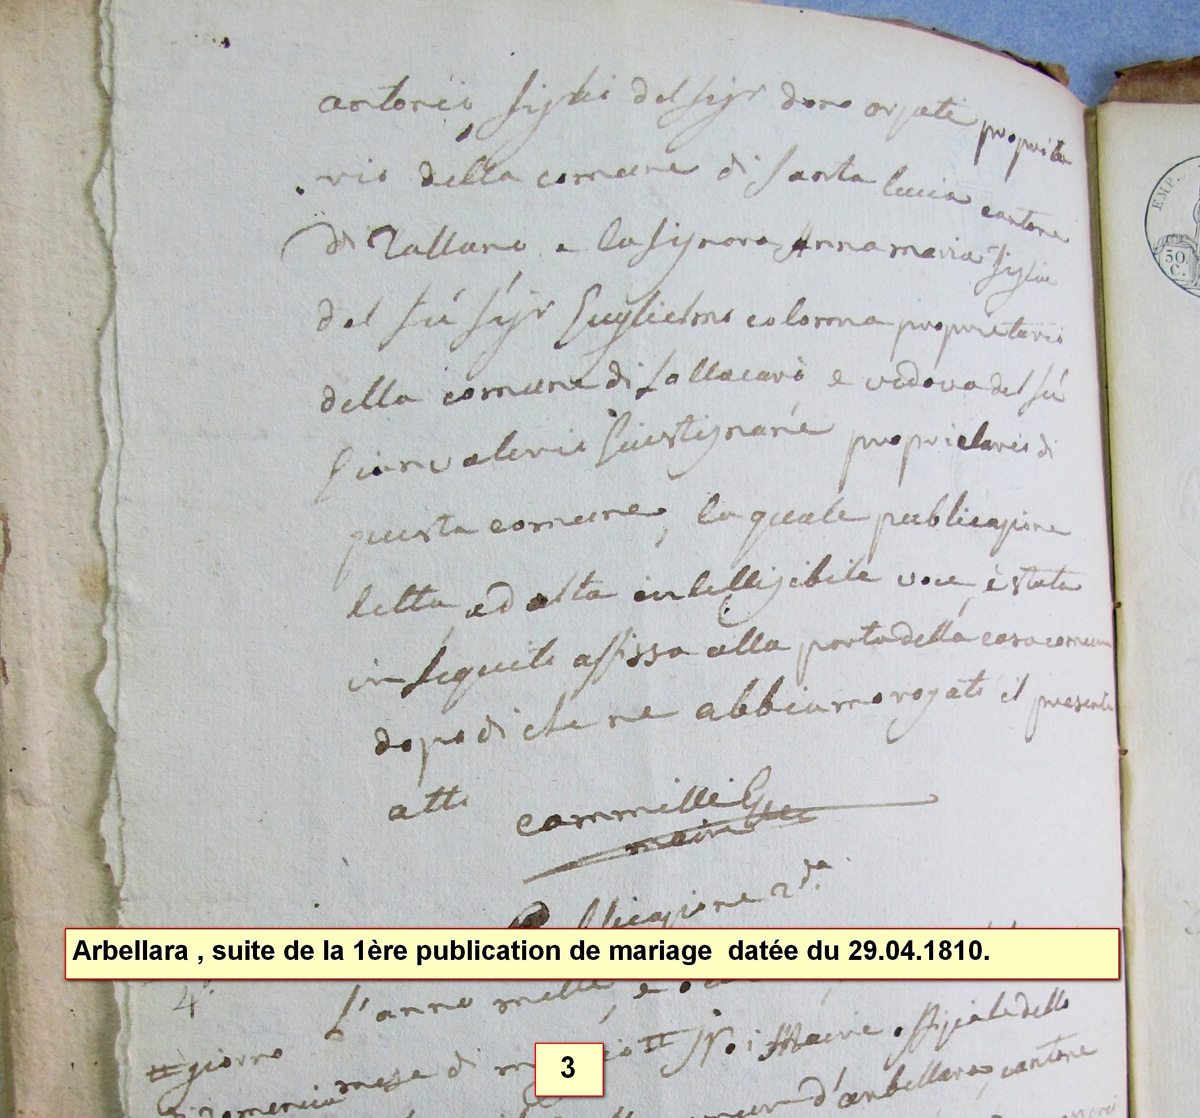 antonio figlio del sigr dono ornate proprieta
rio della comune di santa lucia cantone
di Tallano e la signora Anna maria figlia
del fú sigr Guglielmo colonna proprietario
della comune di sollacarò e vedova del fú
Gianvalerio Giustignane proprietario di
questa comune, la quale publicazione
letta ed alta intelligibile voce, è stata
in seguito affissa alla porta della casa comun
dopo di che ne abbiamo rogato il presente
atto cammilli
maire
publicazione 2da
Arbellara , suite de la 1ère publication de mariage datée du 29.04.1810.
4°
L'anno mille e
giorno mese di Noi Maire officiale dello
d'arbellara, cantone
3
EMP.
50.
C.